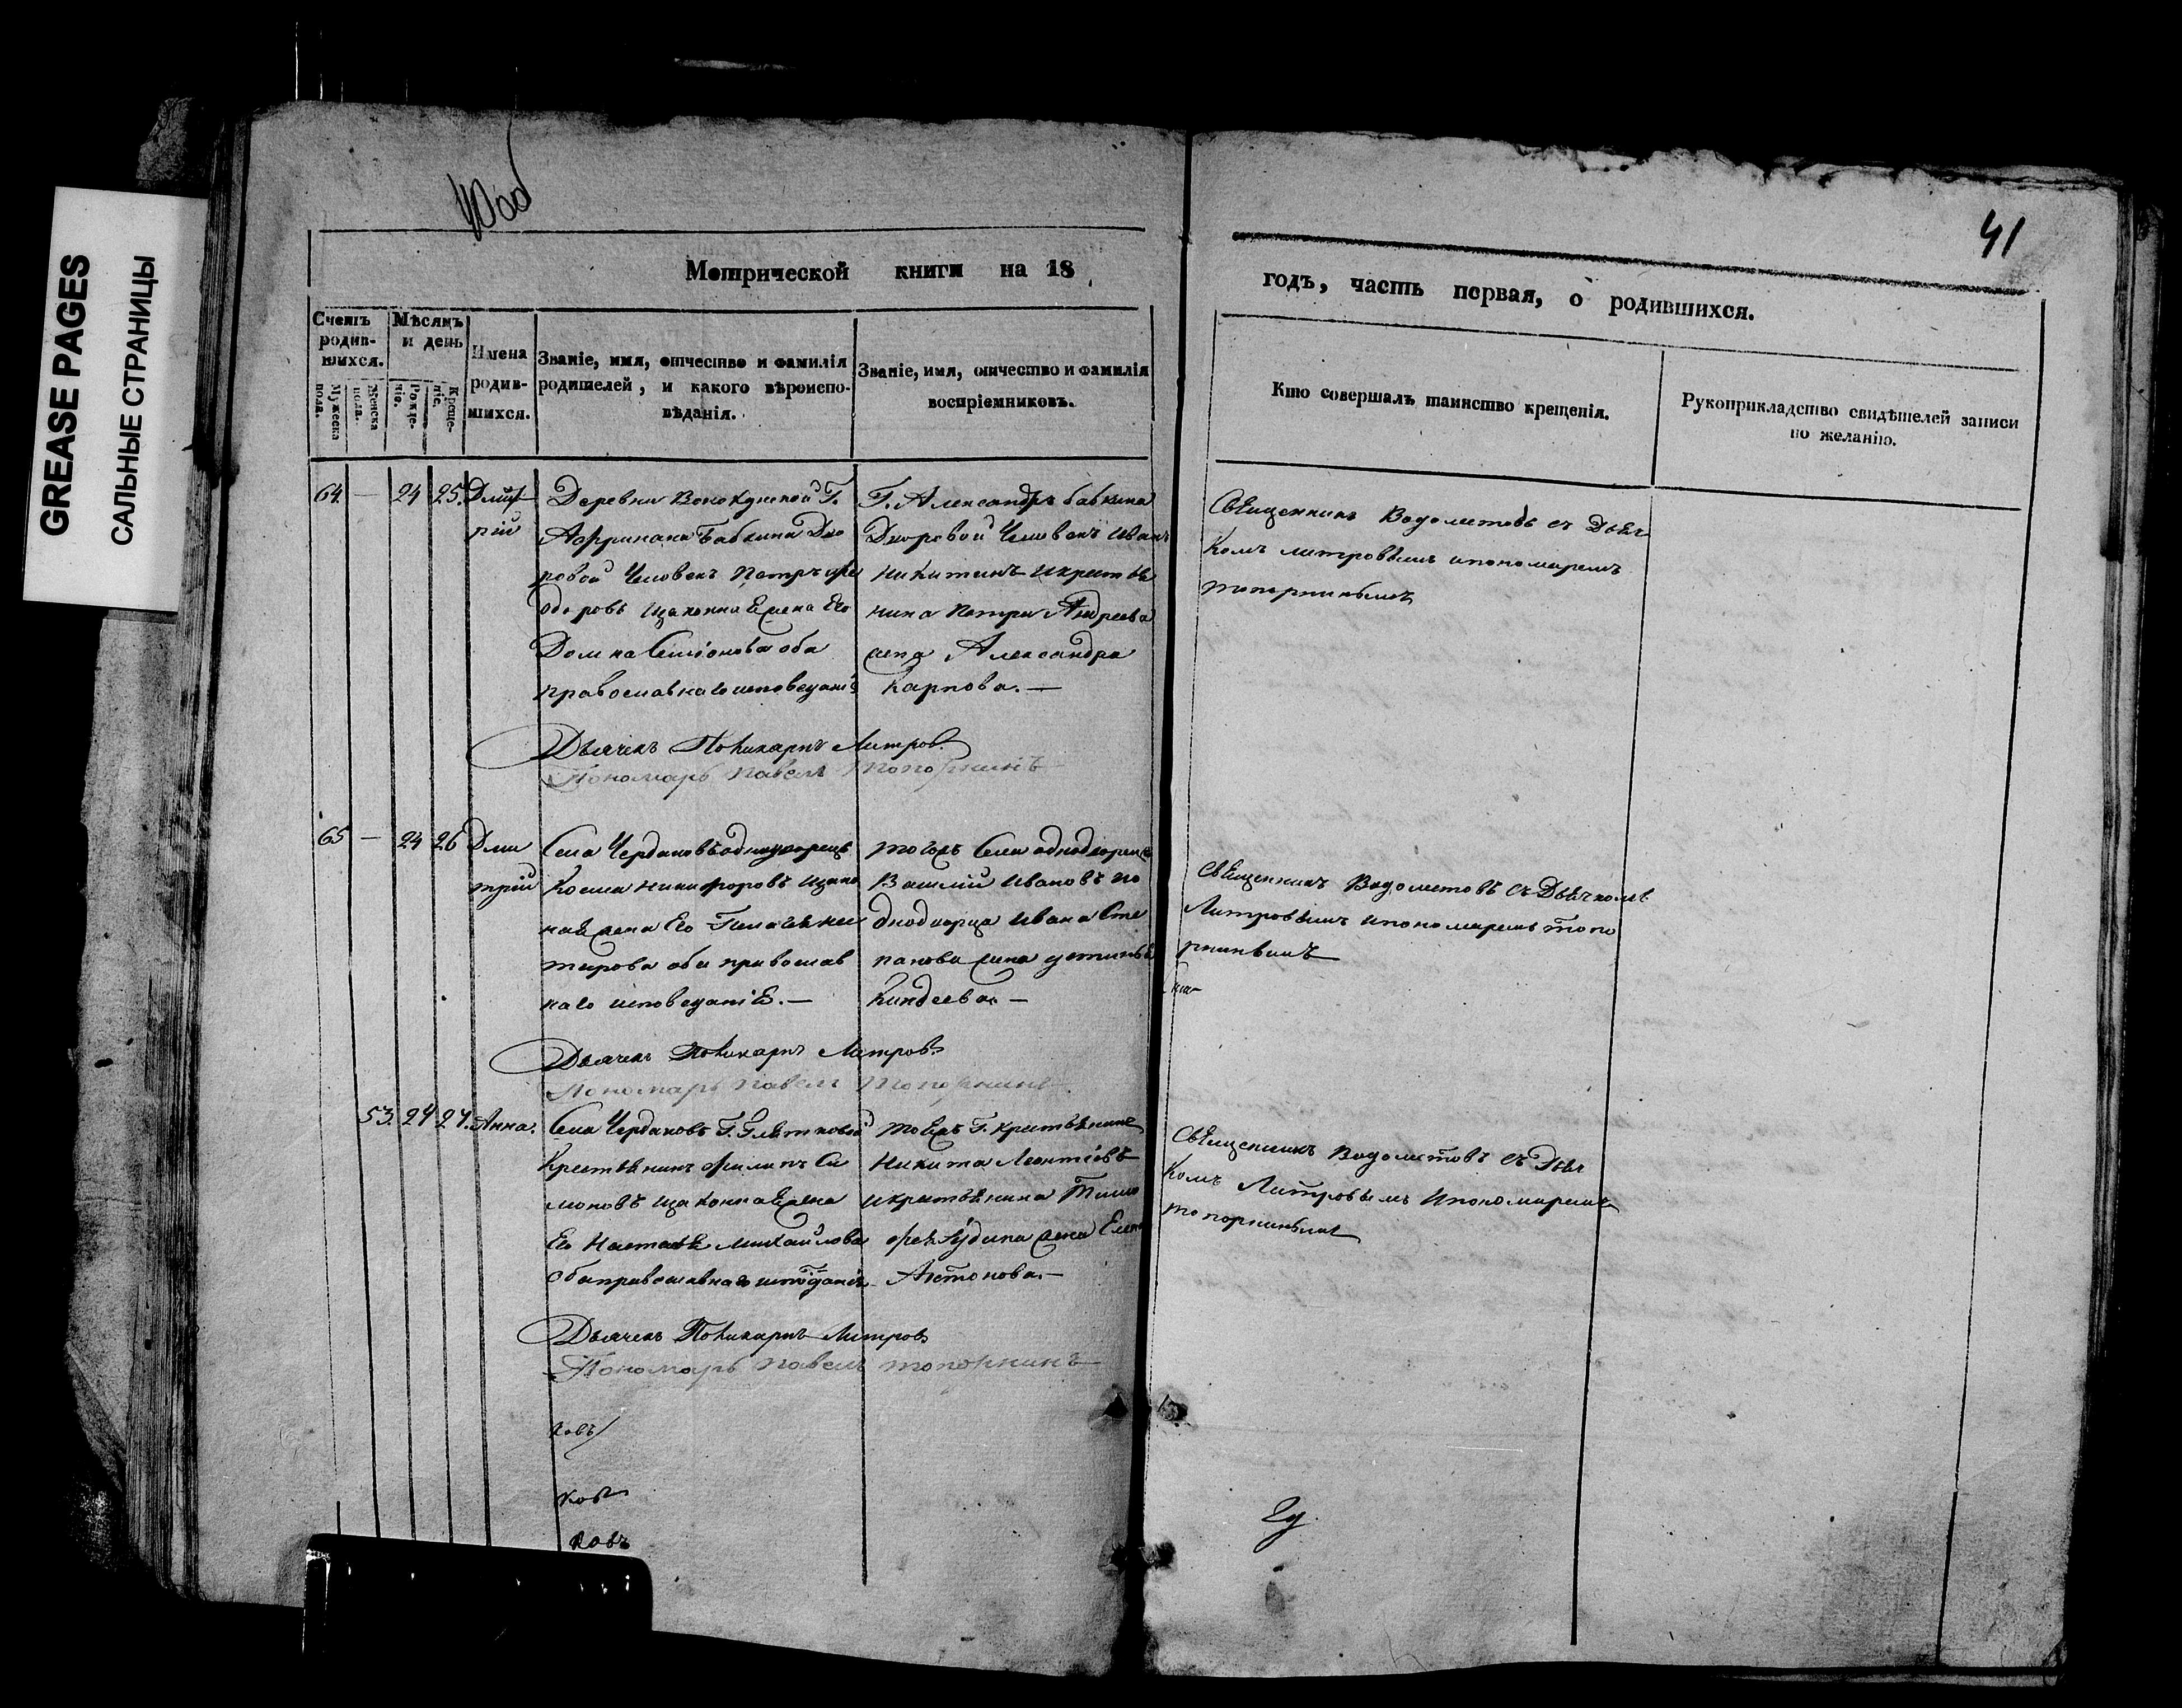 GREASE PAGES
САЛЬНЫЕ СТРАНИЦЫ
41
Метрической книги на 18
годъ, часть первая, о родившихся.
Счетъ родив-
шихся.
Мужеска пола.
Женска пола.
Мѣсяцъ
и день
Рожде-
нія.
Креще-
нія.
Имена
родив-
шихся.
Званіе, имя, отчество и фамилія
родителей, и какого вѣроиспо-
вѣданія.
Званіе, имя, отчество и фамилія
воспріемниковъ.
Кто совершалъ таинство крещенія.
Рукоприкладство свидѣтелей записи
по желанію.
64 — 24 25
Дмит
рій
Деревни Г.
Бабкина Дво
ровой Человекъ Петръ Фе
одоровъ изаконна Жена Его
Домна Семионова оба
православнаго исповеданіѣ
Г. Александра бабкина
Дворовой Человекъ Иванъ
Никитинъ икрестья
нина Петра Андреева
жена Александра
Карпова. —
Священникъ Водолетовъ съ Дьяч
комъ митровымъ ипономаремъ
топорнинымъ
Дьячекъ Поликарпъ Митровъ
Пономарь павелъ топорнинъ
65 — 24 26
Дми
трій
Села Чердаковъ однодворецъ
Косма никифоровъ изако
ная жена Его Пелагѣя не
терова оба православ
наго исповеданіѣ. —
тогожъ Села однодворецъ
Василій Ивановъ ио
днодворца Ивана Сте
панова жена устинья
Киндеева —
Священникъ Водолетовъ съ Дьячкомъ
Митровымъ ипономаремъ топо
рнинымъ
Дьячекъ Поликарпъ Митровъ
Пономарь павелъ топорнинъ
53. 24 27. Анна.
Села Чердаковъ Г.
Крестьянинъ Филипъ Си
моновъ изаконна Жена
Его Настасья Михайлова
оба православнаго исповеданіѣ
тоежъ Г. крестьянинъ
Никита Леонтіевъ
икрестьянина Тимо
фея жена Елена
Антонова. —
Священникъ Водолетовъ съ Дьяч
комъ Митровымъ ипономаремъ
топорнинымъ
Дьячекъ Поликарпъ Митровъ
Пономарь павелъ топорнинъ
ковъ
ковъ
ковъ